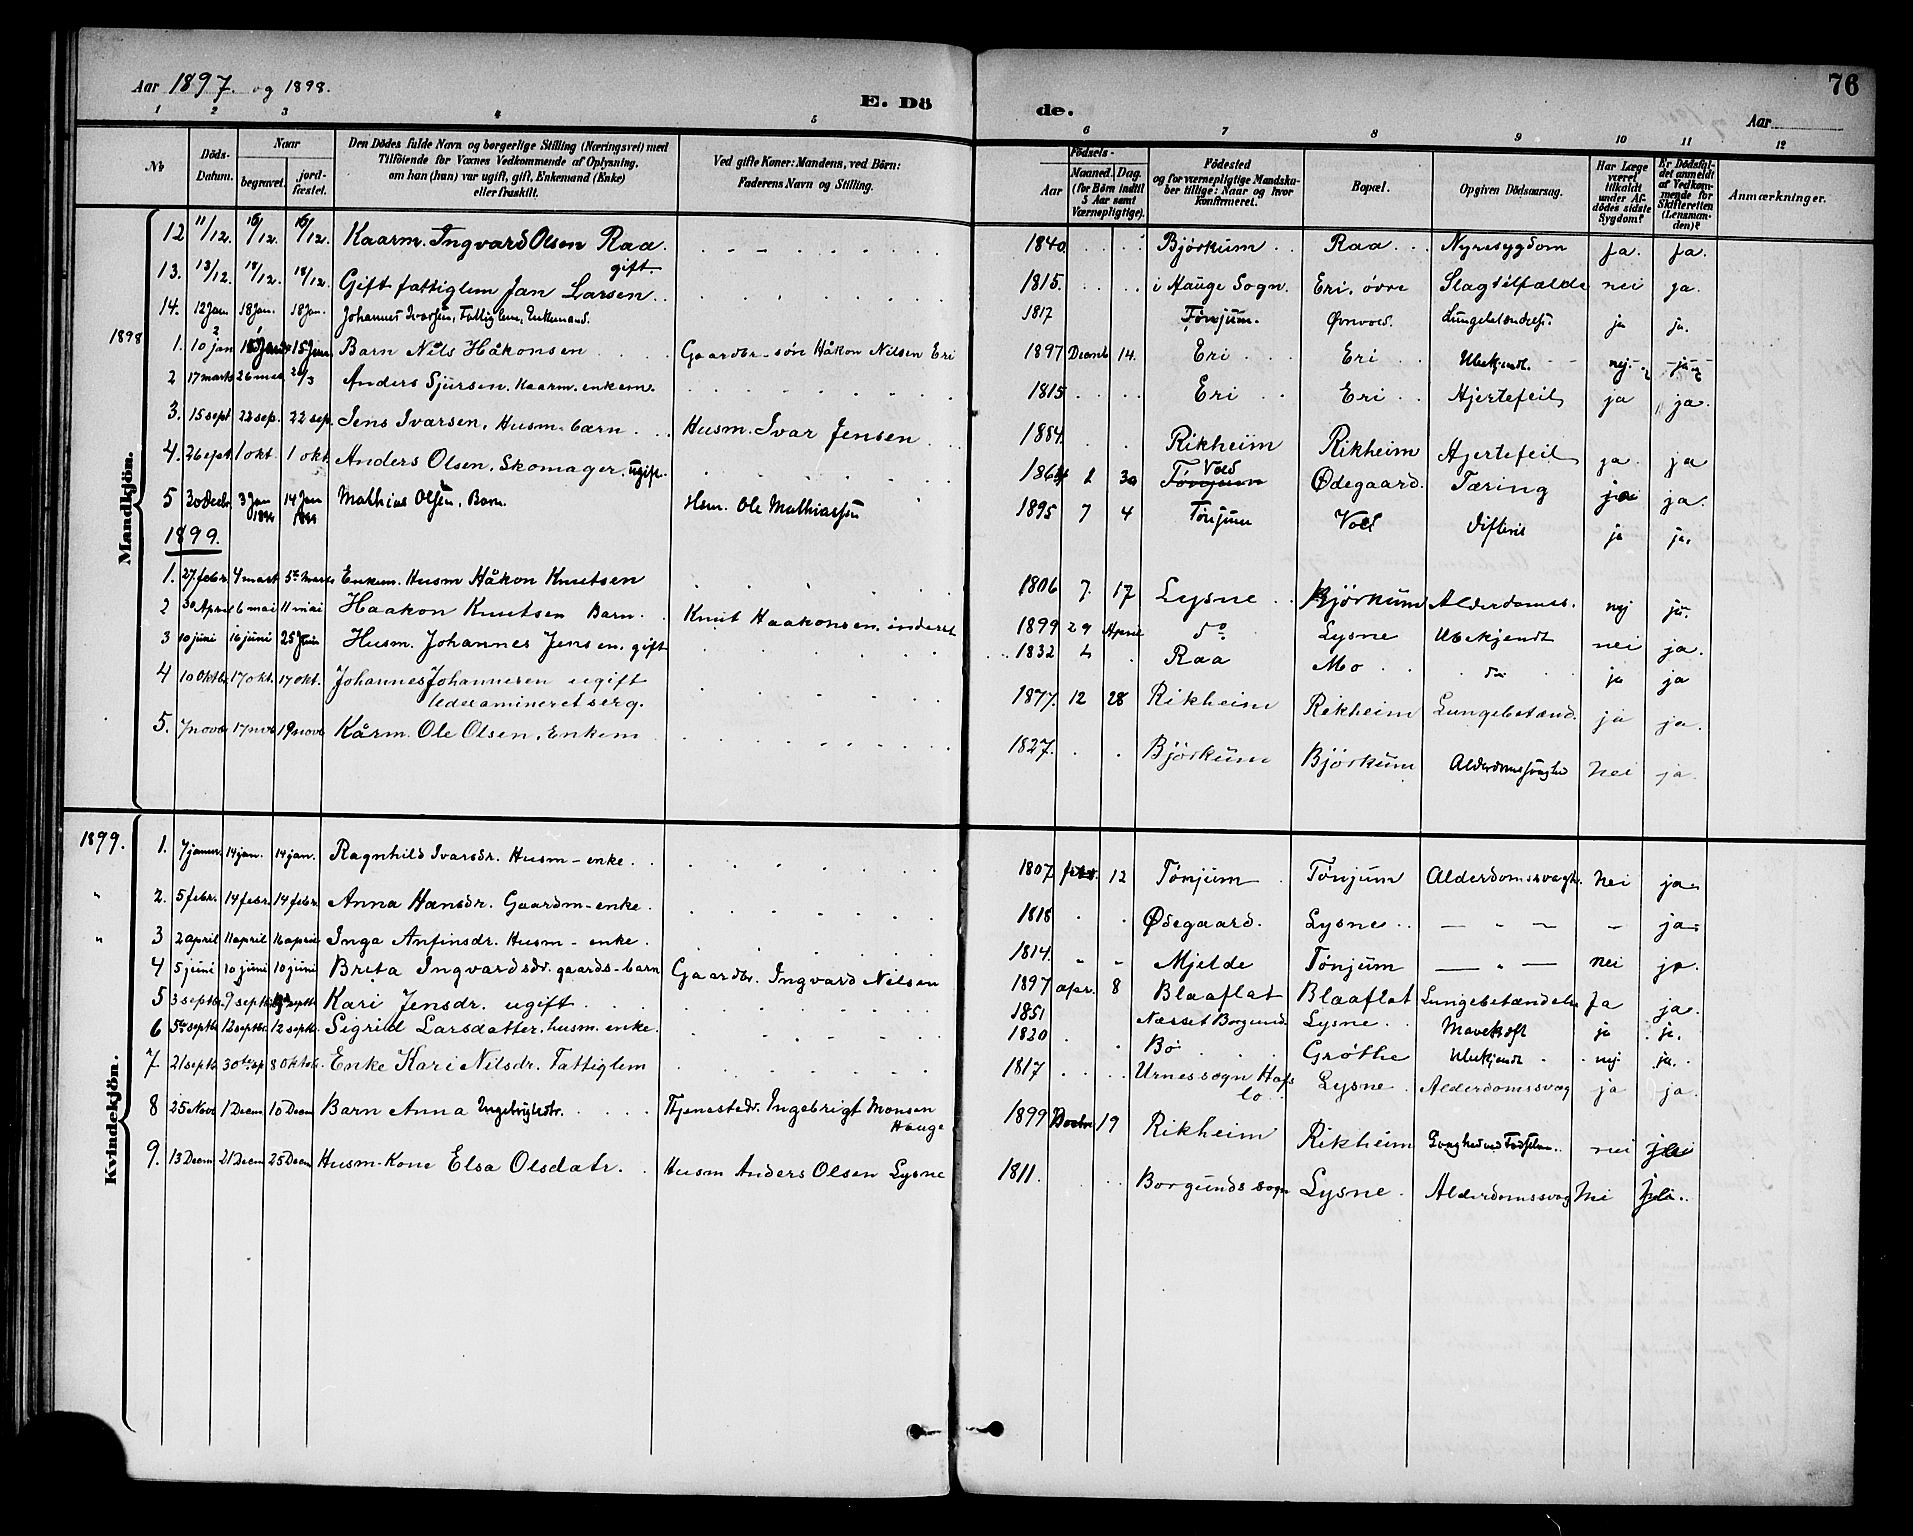 Aar 1897. og 1898.
E. Dö
de.
Aar
76
1 2 3 4 5 6 7 8 9 10 11 12
No
Döds-Datum.
Naar
begravet.
jord-fæstet.
Den Dödes fulde Navn og borgerlige Stilling (Næringsvei) med
Tilföiende for Voxnes Vedkommende af Oplysning,
om han (hun) var ugift, gift, Enkemand (Enke)
eller fraskilt.
Ved gifte Koner: Mandens, ved Börn:
Faderens Navn og Stilling.
Födsels-
Aar
Maaned. Dag.
(for Börn indtil
5 Aar samt
Værnepligtige).
Födested
og for værnepligtige Mandska-
ber tillige: Naar og hvor
konfirmeret.
Bopæl.
Opgiven Dödsaarsag.
Har Læge
været
tilkaldt
under Af-
dödes sidste
Sygdom?
Er Dödsfal-
det anmeldt
af Vedkom-
mende for
Skifteretten
(Lensman-
den)?
Anmærkninger.
Mandkjön.
12 11/12. 16/12. 16/12. Kaarm. Ingvard Olsen Raa. gift. 1840 Bjørkum Raa Nyresygdom Ja. Ja.
13. 13/12. 18/12. 18/12. Gift fattiglem Jan Larsen 1815. i Hauge Sogn. Eri, øvre Slagtilfælde nei ja.
14. 12 Jan 18 Jan. 18 Jan. Johannes Ivarsen, Fattiglem, Enkemand. 1817 Tønjum. Øvrevold. Lungebetændelse. ja ja.
1898 1. 10 jan 15 Jan 15 Jan. Barn Nils Håkonsen Gaardbr.-søn Håkon Nilsen Eri 1897 Decmb 14. Eri Eri Ubekjendt. nej. ja
2 17 marts 26 mas 26/3 Anders Sjursen. Kaarm. enkem. 1815 Eri Eri Hjertefeil ja ja.
3. 15 sept 22 sep. 22 sep. Jens Ivarsen, Husm.-barn Husm. Ivar Jensen 1884. Rikheim Rikheim Hjertefeil ja. ja
4. 26 sept. 1 okt. 1 okt. Anders Olsen, Skomager. ugift. 1864 1 30 Tønjum Vold Ødegaard. Tæring ja ja.
5 30 Decbr. 3 Jan 14 Jan Mathias Olsen, Barn. Hsm. Ole Mathiassen 1895 7 4 Tønjum Vold Difterit ja ja.
1899.
1. 27. febr. 4 mart 5te marts Enkem. Husm Håkon Knutsen 1806 7. 17 Lysne Bjørkum Alderdomss. nej ja.
2 30 April 6 mai 11 mai Haakon Knutsen Barn. Knut Haakonsen, inderst 1899 29 April do Lysne Ubekjendt nei ja.
3 10 juni 16 juni 25 Juni Husm. Johannes Jensen, gift 1832 Raa Mo do ja ja
4 10 Oktbr. 17 okt. 17 okt. Johannes Johannesen ugift 1877. 12 28 Rikheim Rikheim Lungebetænd. ja ja.
Uexamineret serg.
5. 7 novbr 17 nvb 19 novb Kårm. Ole Olsen, Enkem 1827. Bjørkum Bjørkum Alderdomssvaghed Nei ja.
Kvindekjön.
1899. 1. 7 januar. 14 jan. 14 jan. Ragnhild Ivarsdr. Husm-enke. 1807 febr. 12 Tønjum Tønjum Alderdomssvagh. Nei ja
" 2. 5 febr. 14 febr. 14 febr. Anna Hansdr. Gaardm-enke. 1818 Ødegaard. Lysne — " — - ja
" 3 2 april 11 april 16 april Inga Anfinsdr. Husm-enke. 1814. " " Mjelde Tønjum — " — nei ja.
4 5 juni 10 juni 10 juni Brita Ingvardsdr. gaards-barn Gaardbr. Ingvard Nilsen 1897 apr. 8 Blaaflat Blaaflat Lungebetændelse Ja ja.
5 3 septb 9 septb septb Kari Jensdr. ugift 1851 Næsset Borgund Lysne Mavekræft ja ja.
6 5te septb 12 septb. 12 septb. Sigrid Larsdatter. husm. enke. 1820 Bø Grøthe Ubekjendt nej ja.
7 21 septb 30te sp 8 Oktob. Enke Kari Nilsdr. Fattiglem 1817 Urnes sogn Hafslo Lysne Alderdomssvag ja ja.
8 25 Nove 1 Decm 10 Decm Barn Anna Ingebrigtsdr. Tjenestedr. Ingebrigt Monsen Hauge 1899 19 Rikheim Rikheim Svaghed ved Fødselen. nei
9. 13 Decm 21 Decm 25 Decm Husm-Kone Elsa Olsdatr. Husm Anders Olsen Lysne 1811. Borgunds sogn Lysne. Alderdomssvag Nei